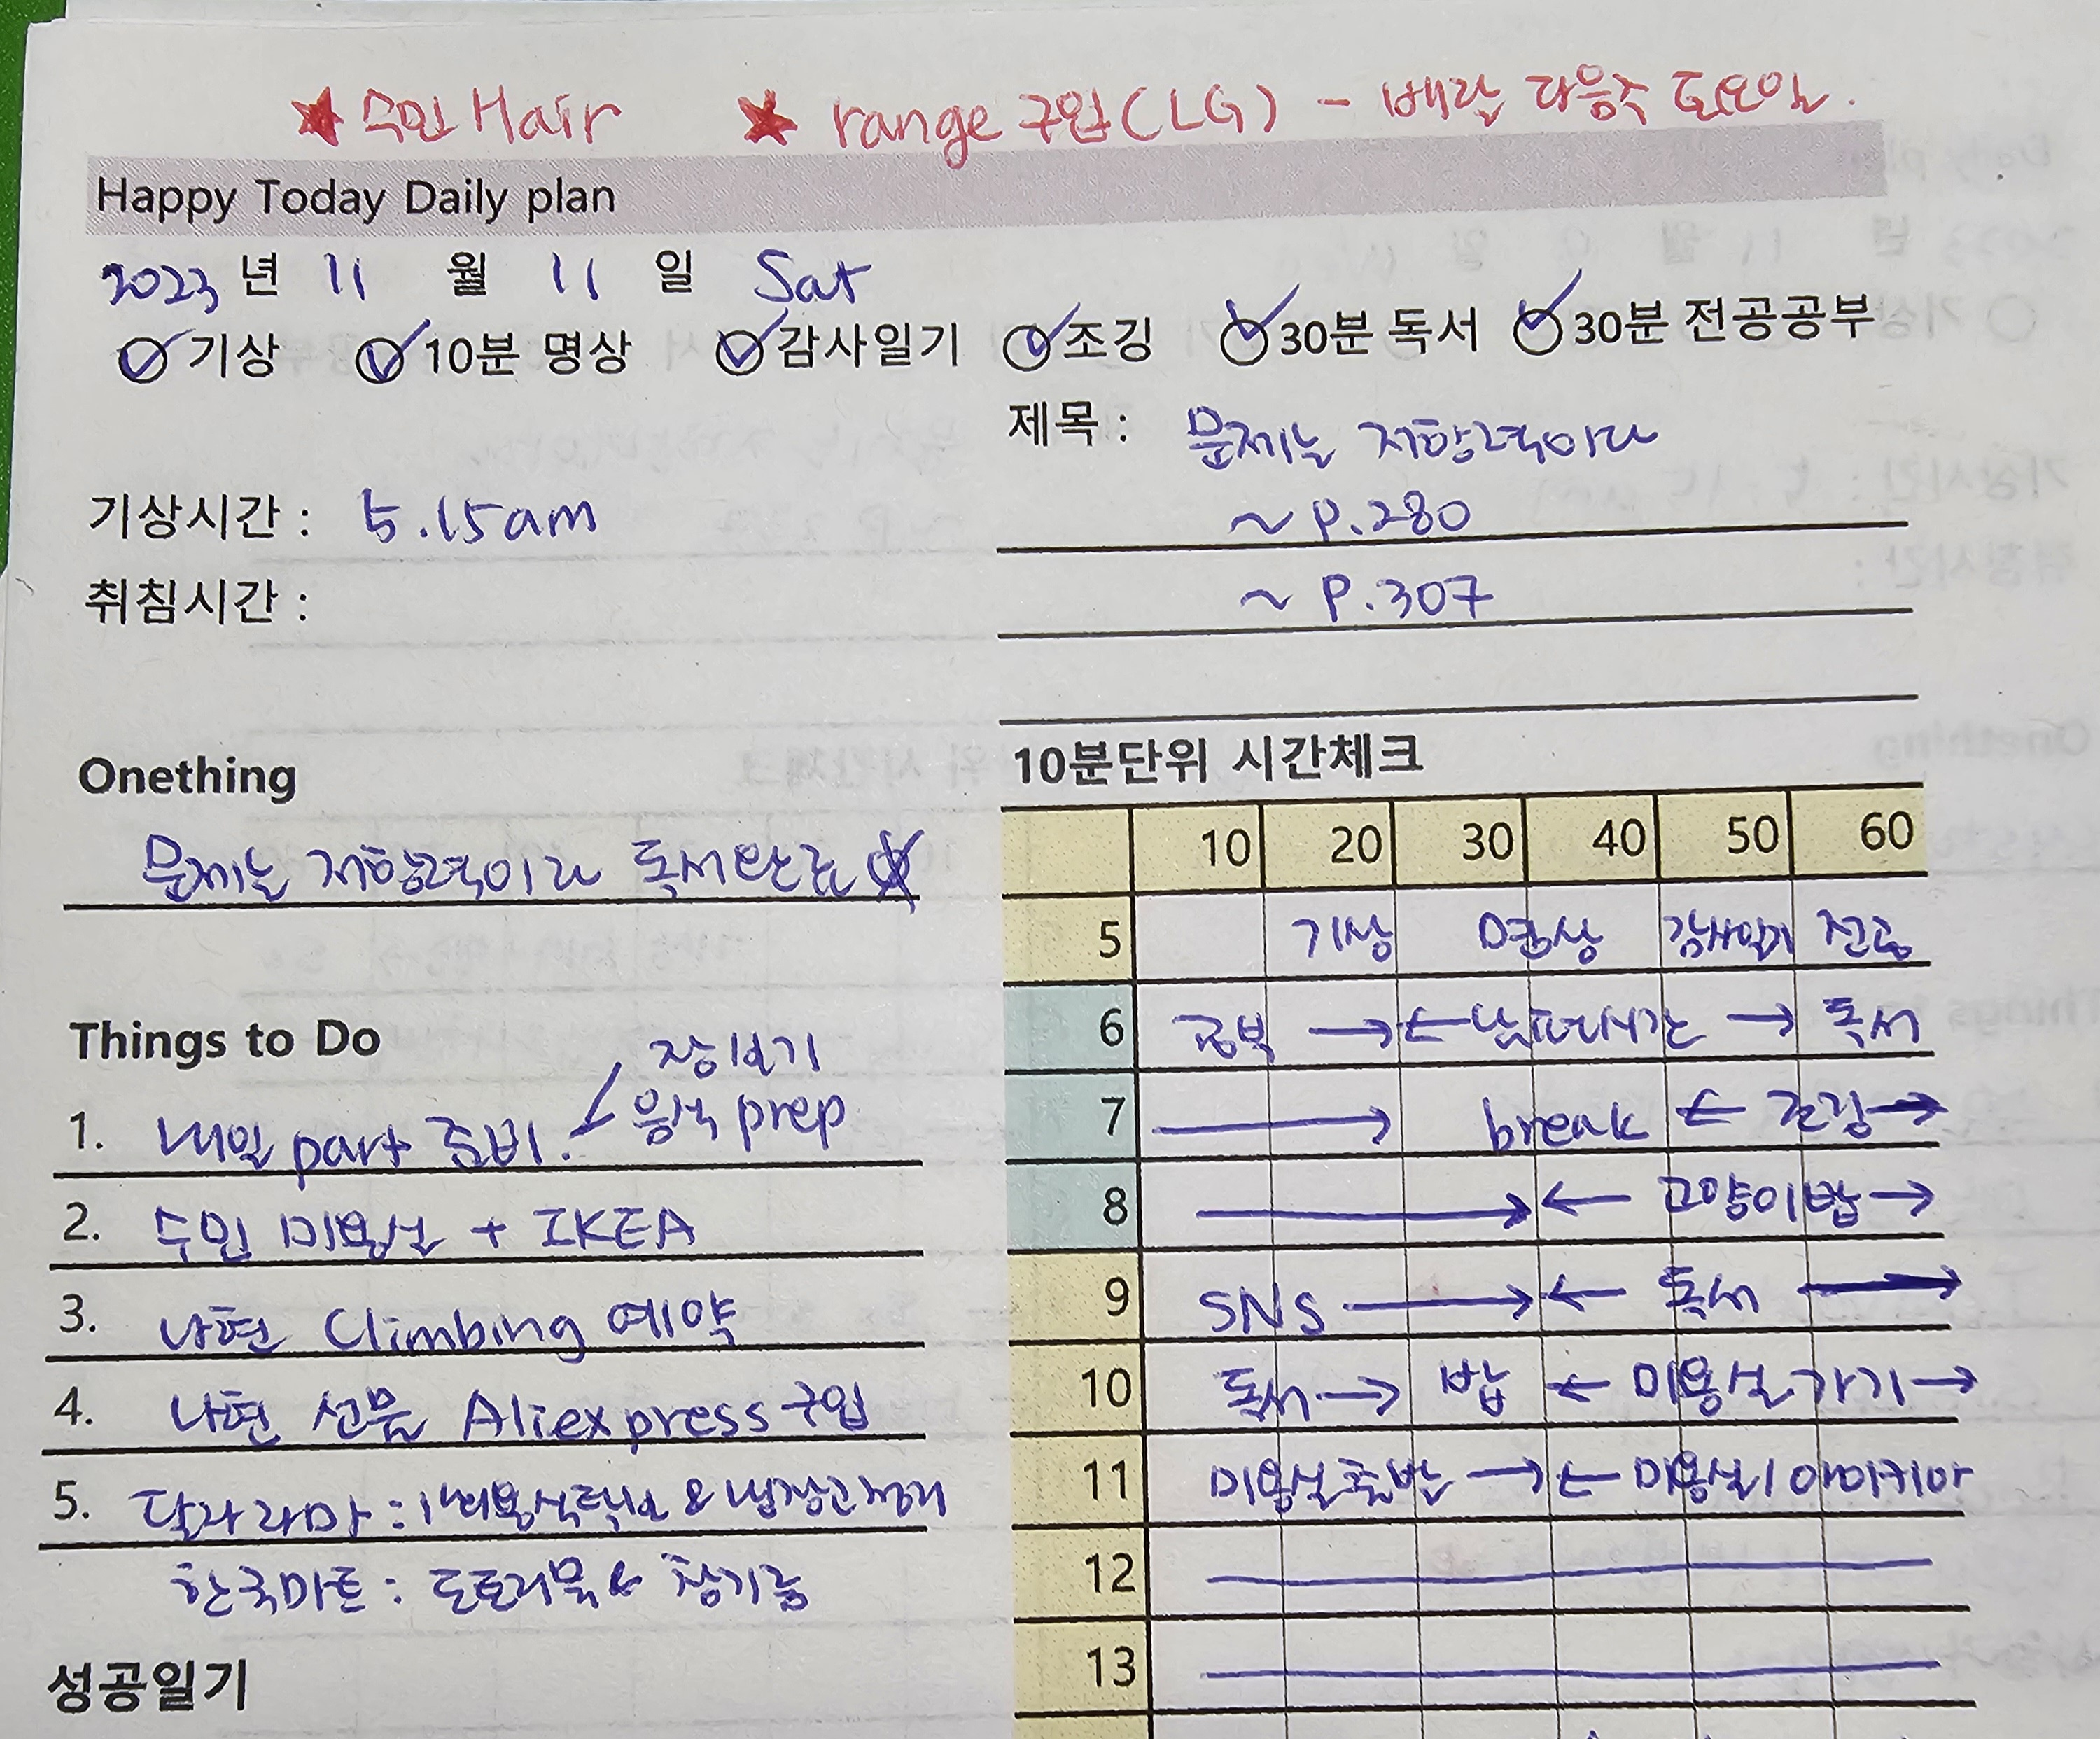 ★ 수민 Hair ★ range 구입 (LG) - 배달 다음주 토요일.
Happy Today Daily plan
2023 년 11 월 11 일 Sat
기상 10분 명상 감사일기 조깅 30분 독서 30분 전공공부
제목 : 문제는 저항력이다
기상시간 : 5.15am
~ P.280
취침시간 :
~ P.307
Onething
문제는 저항력이다 독서완료 ☆
Things to Do
장보기
음식 prep
1. 내일 part 준비.
2. 수민 미용실 + IKEA
3. 남편 Climbing 예약
4. 남편 선물 Aliexpress 구입
5. 달라라마 : & 냉장고정리
한국마트 : 도토리묵 & 참기름
성공일기
10분단위 시간체크
10 20 30 40 50 60
5 기상 명상 감사일기 전공
6 공부 → ← 남편시간 → 독서
7 → break ← 조깅 →
8 → ← 고양이밥 →
9 SNS → ← 독서 →
10 독서 → 밥 ← 미용실가기 →
11 미용실출발 → ← 미용실 / 아이키아
12
13